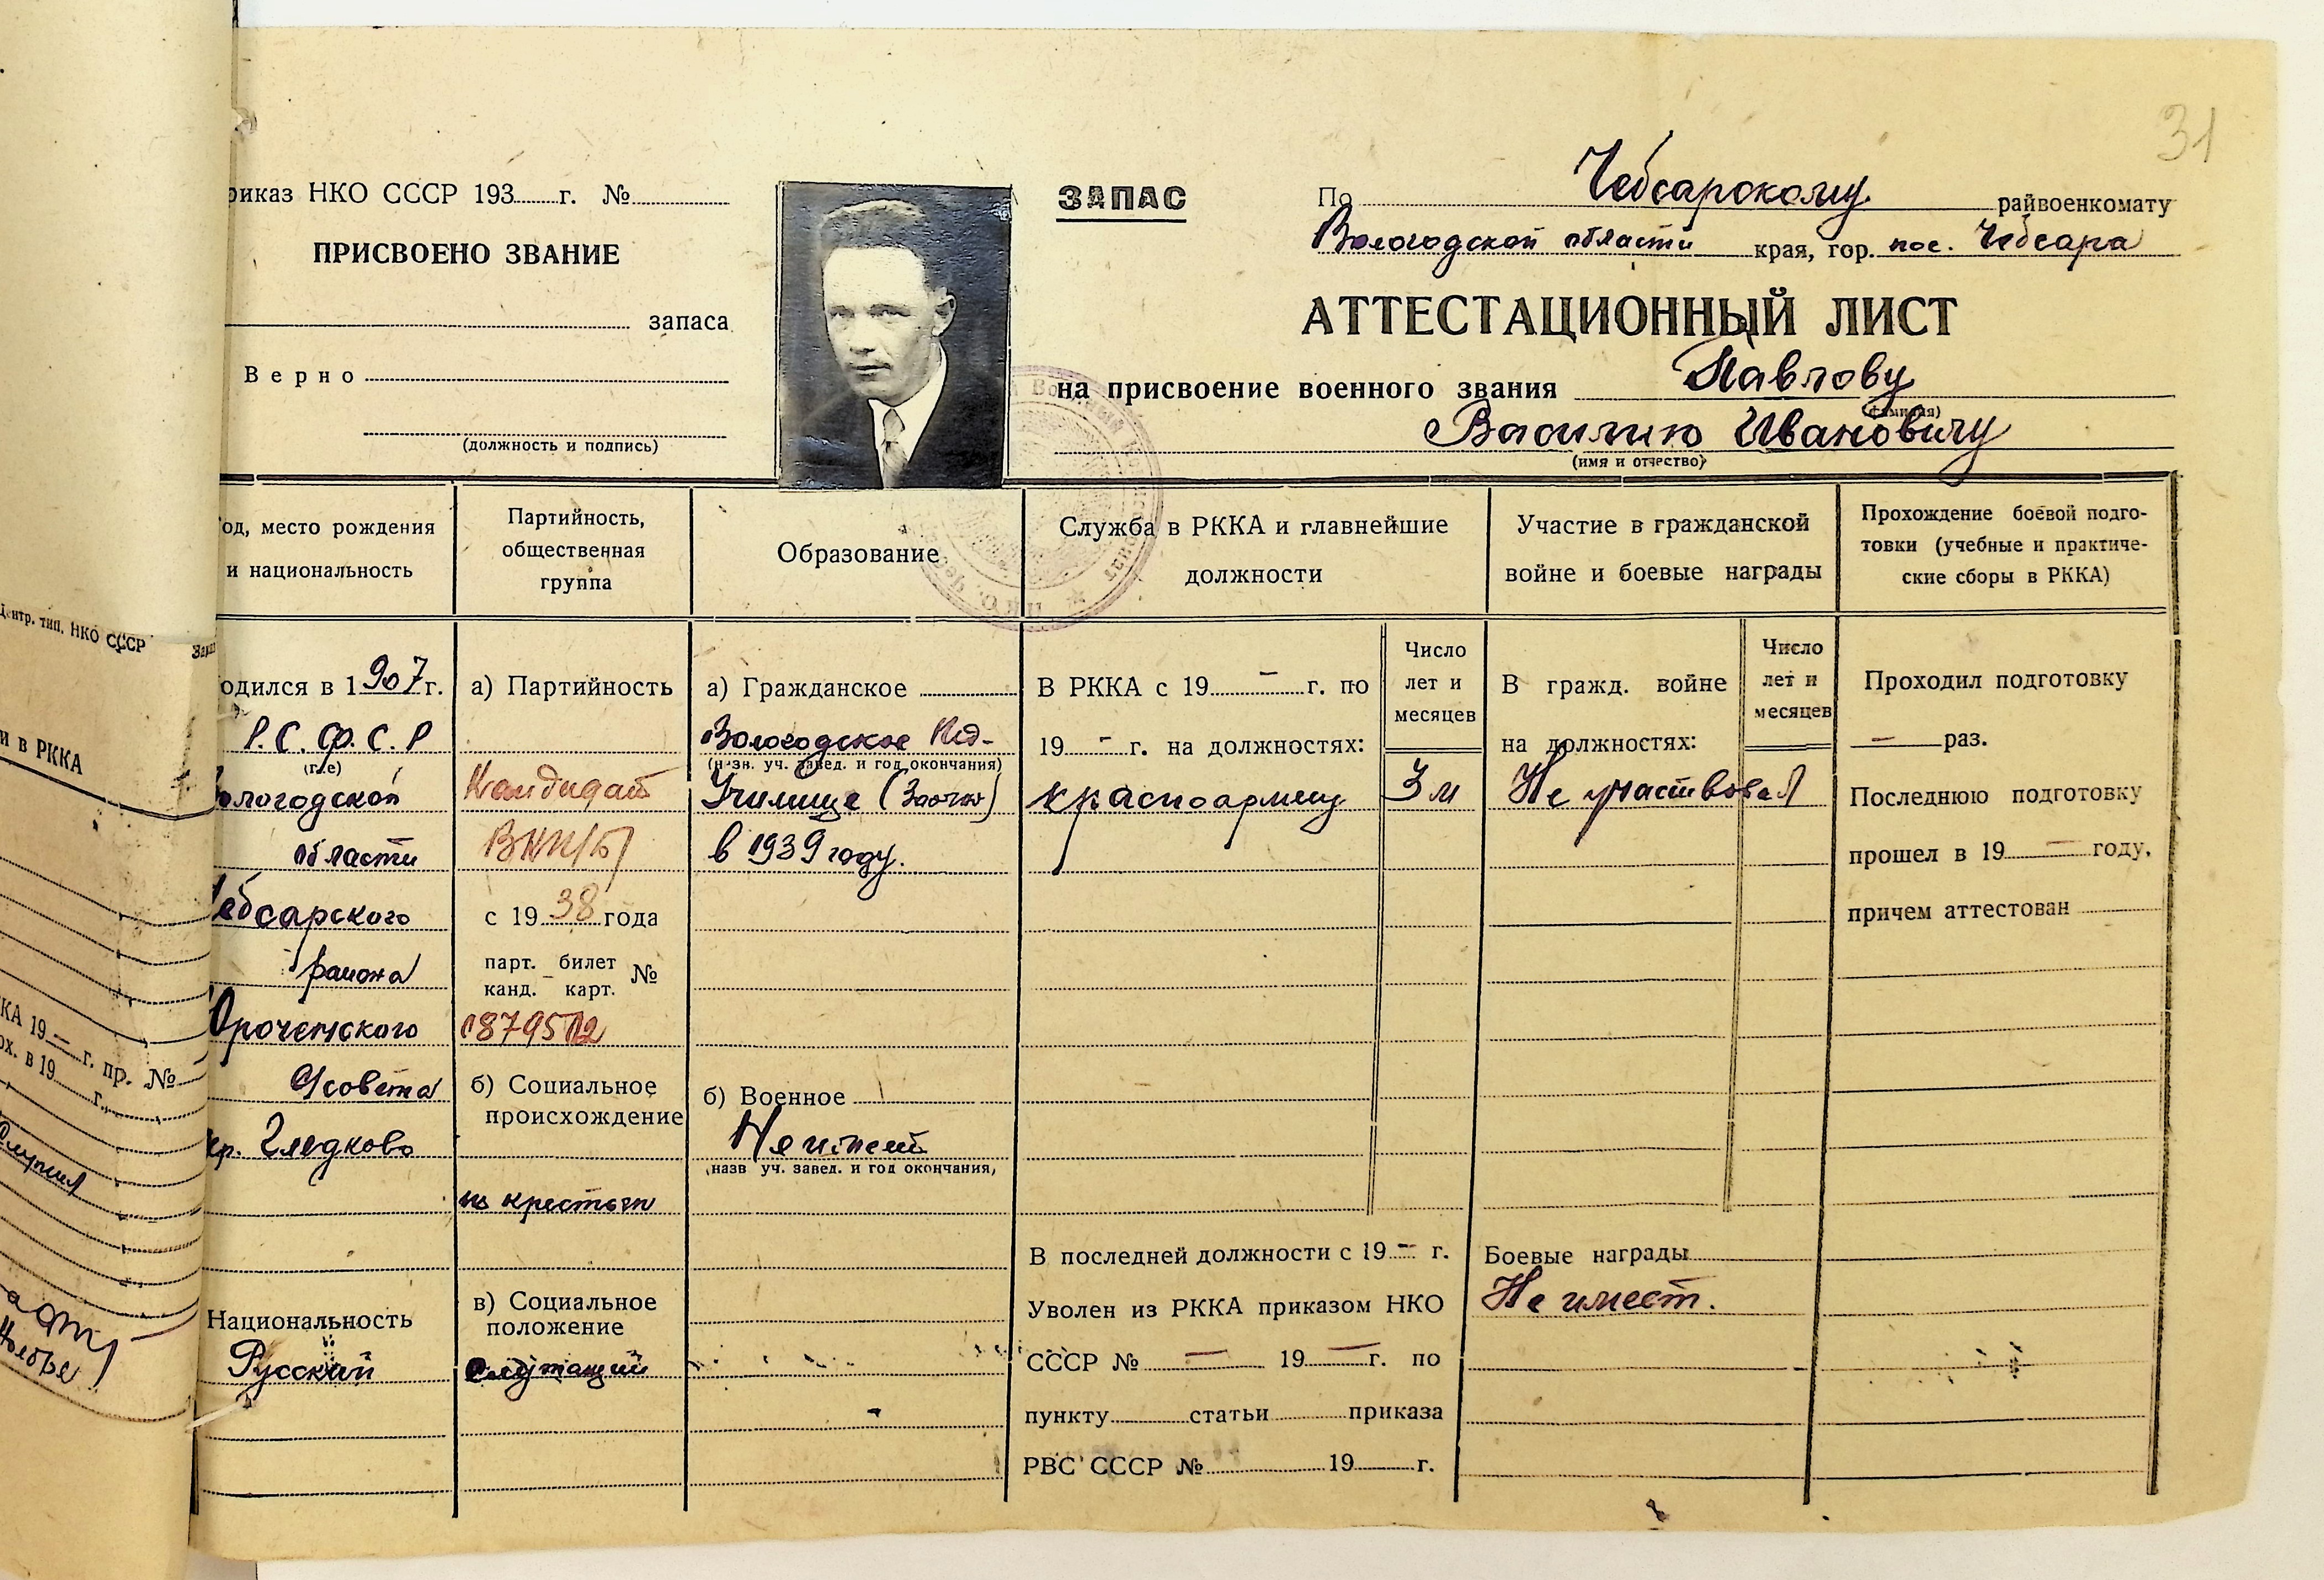 31
риказ НКО СССР 193 г. №
ПРИСВОЕНО ЗВАНИЕ
запаса
Верно
(должность и подпись)
ЗАПАС
По Чебсарскому райвоенкомату
Вологодской области края, гор. пос. Чебсара
АТТЕСТАЦИОННЫЙ ЛИСТ
на присвоение военного звания Павлову
(фамилия)
Василию Ивановичу
(имя и отчество)
од, место рождения
и национальность
одился в 1907 г.
Р.С.Ф.С.Р
(где)
ологодской
области
ебсарского
района
С/совета
р. Гледково
Национальность
Русский
Партийность,
общественная
группа
а) Партийность
Кандидат
ВКП/б/
с 1938 года
парт. билет
канд. карт. №
б) Социальное
происхождение
из крестьян
в) Социальное
положение
Служащий
Образование
а) Гражданское
Вологодское Пед-
(назн. уч. завед. и год окончания)
Училище (Заочно)
в 1939 году.
б) Военное
Не имеет
(назв уч. завед. и год окончания,
Служба в РККА и главнейшие
должности
В РККА с 19 – г. по
19 - г. на должностях:
красноармеец
Число
лет и
месяцев
3 м
В последней должности с 19 - г.
Уволен из РККА приказом НКО
СССР № – 19 – г. по
пункту статьи приказа
РВС СССР № 19 г.
Участие в гражданской
войне и боевые награды
В гражд. войне
на должностях:
Число
лет и
месяцев
Не участвовал
Боевые награды
Не имеет.
Прохождение боевой подго-
товки (учебные и практиче-
ские сборы в РККА)
Проходил подготовку
– раз.
Последнюю подготовку
прошел в 19 – году,
причем аттестован
Центр. тип. НКО СССР
Зака
и в РККА
КА 19 – г. пр. №
ох. в 19 г.,